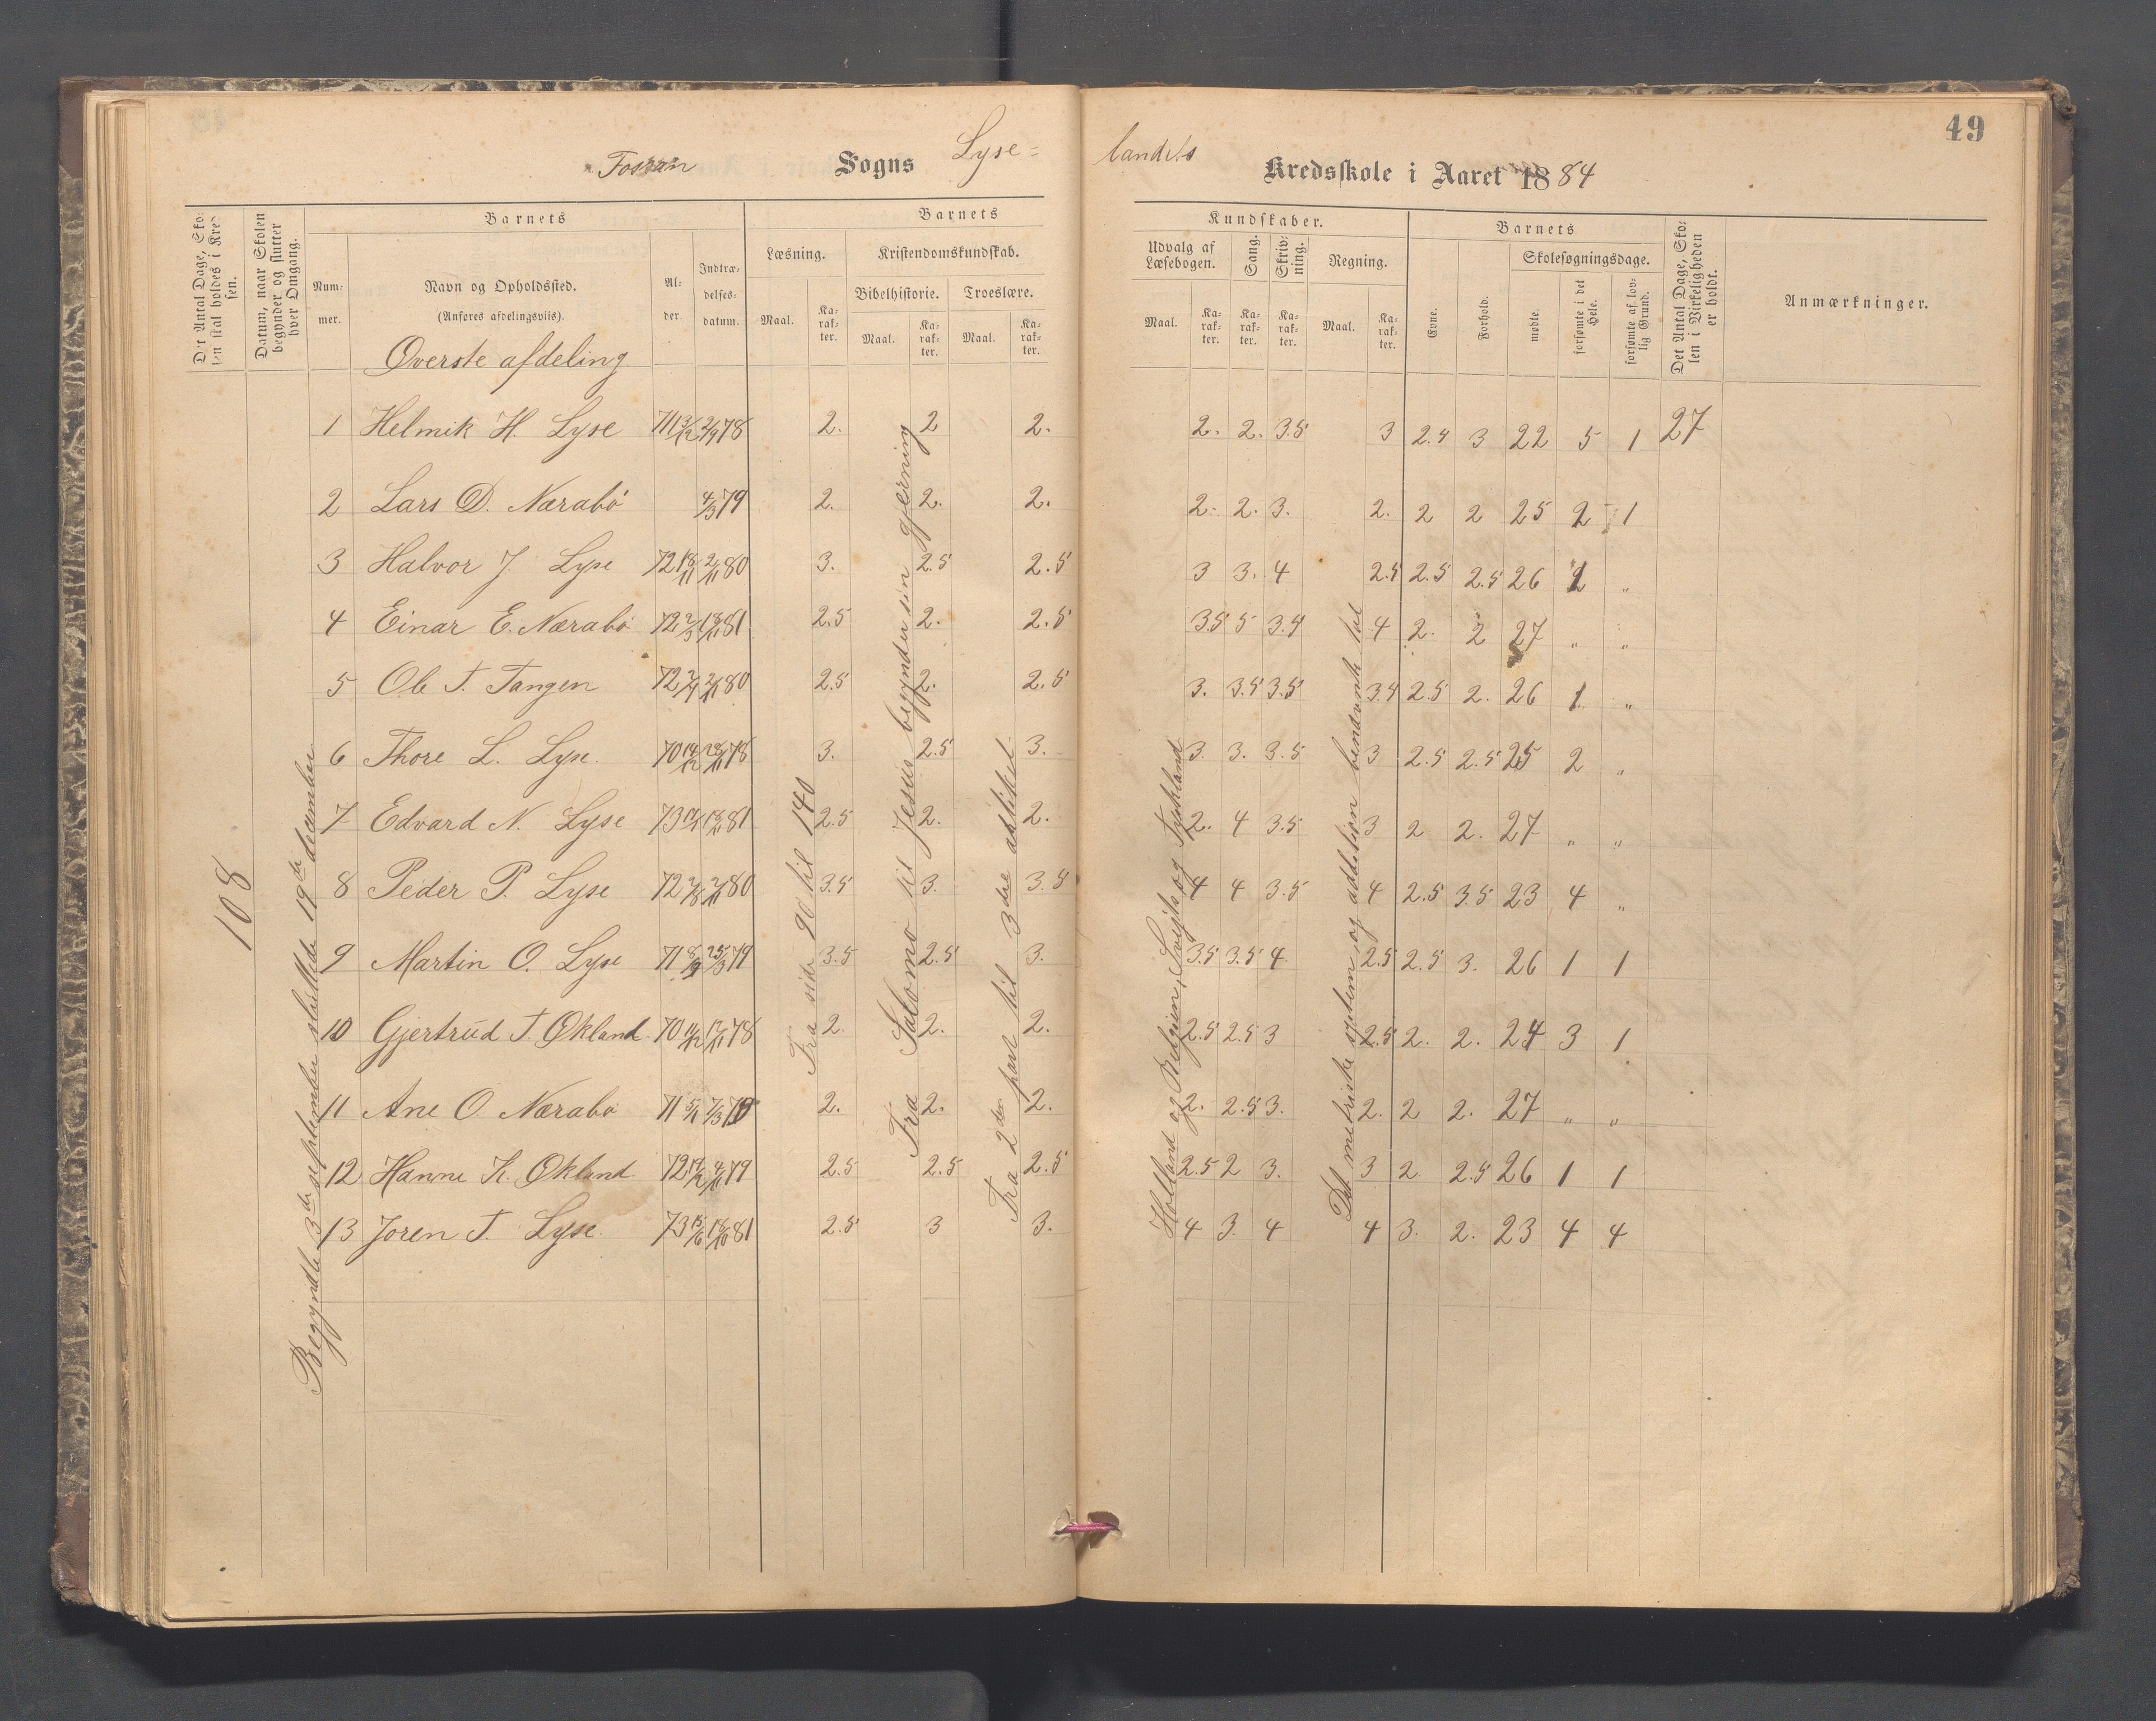 49
Fossan Sogns Lyse=
landets Kredsskole i Aaret 1884
Det Antal Dage, Skolen skal holdes i Kredsen.
Datum, naar Skolen begynder og slutter hver Omgang.
Barnets
Nummer.
Navn og Opholdssted.
(Anføres afdelingsviis).
Alder.
Indtrædelsesdatum.
Barnets
Læsning.
Kristendomskundskab.
Bibelhistorie. Troeslære.
Maal. Karakter. Maal. Karakter. Maal. Karakter.
Kundskaber.
Udvalg af Læsebogen. Sang. Skrivning. Regning.
Maal. Karakter. Karakter. Karakter. Maal. Karakter.
Barnets
Evne. Forhold.
Skolesøgningsdage.
mødte. forsømte i det Hele. forsømte af lovlig Grund.
Det Antal Dage, Skolen i Virkeligheden er holdt.
Anmærkninger.
Øverste afdeling
1 Helmik H. Lyse 71 13/12 2/9 78 2. 2 2. 2. 2. 3.5 3 2.4 3 22 5 1 27
2 Lars D. Nærabø 4/3 79 2. 2. 2. 2. 2. 3. 2. 2 2 25 2 1
3 Halvor J. Lyse 72 18/11 2/11 80 3. 2.5 2.5 3 3. 4 2.5 2.5 2.5 26 1 "
4 Einar E. Nærabø 72 2/3 18/11 81 2.5 2. 2.5 3.5 5 3.5 4 2. 2 27 " "
5 Ole T. Tangen 72 2/11 80 2.5 2. 2.5 3. 3.5 3.5 3.5 2.5 2. 26 1 "
6 Thore L. Lyse. 70 14/12 78 3. 2.5 3. 3. 3. 3.5 3 2.5 2.5 25 2 "
7 Edvard N. Lyse 73 81 2.5 2. 2. 2. 4 3.5 3 2 2. 27 " "
8 Peder P. Lyse 72 2/11 80 3.5 3. 3.5 4 4 3.5 4 2.5 3.5 23 4 "
9 Martin O. Lyse 71 8/9 25/3 79 3.5 2.5 3. 3.5 3.5 4 2.5 2.5 3. 26 1 1
10 Gjertrud T. Økland 70 11/12 78 2. 2. 2. 2.5 2.5 3 2.5 2. 2. 24 3 1
11 Ane O. Nærabø 71 7/3 79 2. 2. 2. 2. 2.5 3. 2. 2 2. 27 " "
12 Hanne K. Økland 72 4/11 79 2.5 2.5 2.5 2.5 2 3. 3 2 2.5 26 1 1
13 Joren T. Lyse. 73 15/6 18/10 81 2.5 3 3. 4 3. 4 4 3. 2. 23 4 4
108
Begyndte 3de september sluttede 19de december
Fra side 90 til 140
Fra Salomo til Jesus begynder sin gjerning
Fra 2den part til 3die artikel
Holland og Belgien, Sveits og Tyskland
Det metriske system og addition benævnte tal